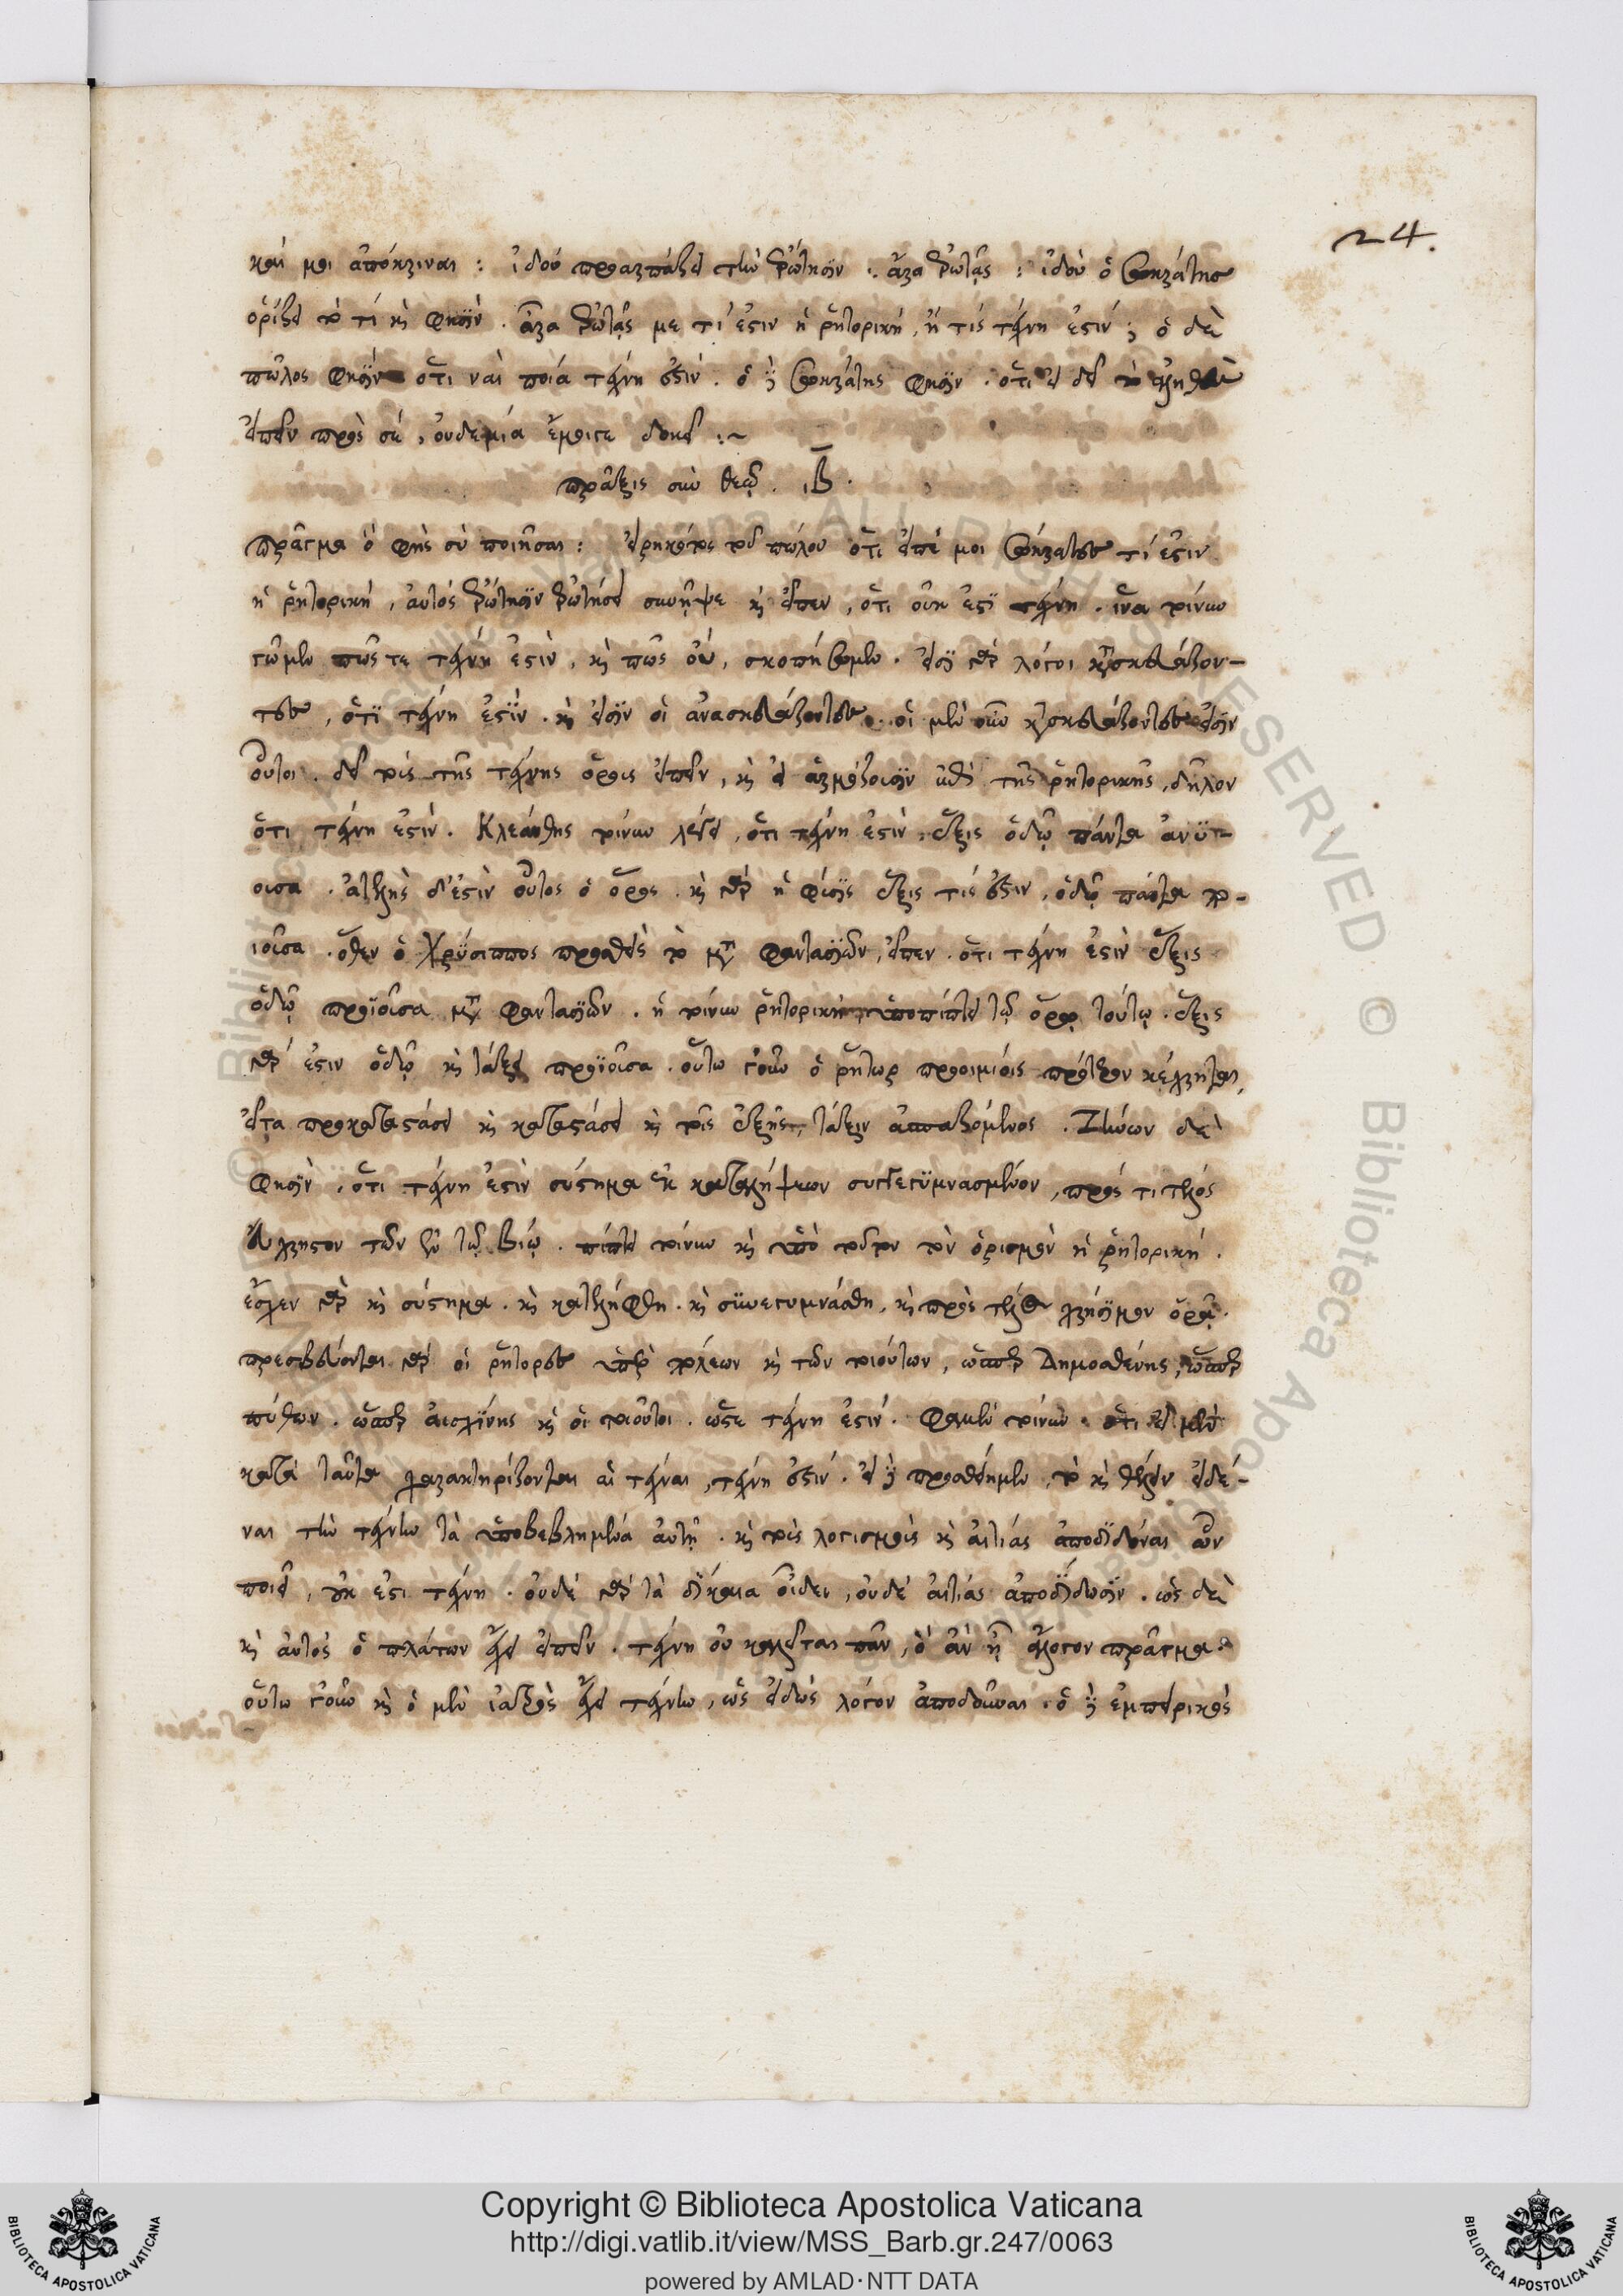 24.
καί μοι ἀπόκριναι : ἰδοὺ προαρπάζει τὴν ἐρώτησιν . ἆρα ἐρωτᾷς : ἰδοὺ ὁ Σωκράτης
ὁρίζει τὸ τί καὶ φησίν . ἆρα ἐρωτᾷς με τί ἐστιν ἡ ῥητορική , ἢ τίς τέχνη ἐστίν ; ὁ δὲ
πῶλος φησὶν ὅτι ναὶ ποιά τέχνη ἐστίν . ὁ δὲ Σωκράτης φησὶν . ὅτι εἰ δεῖ τὸ ἀληθὲς
εἰπεῖν πρὸς σέ , οὐδεμία ἔμοιγε δοκεῖ :~
πρᾶξις σὺν θεῷ . ιβ .
πρᾶγμα ὃ φῂς σὺ ποιῆσαι : εἰρηκότος τοῦ πώλου ὅτι εἰπέ μοι Σώκρατες τί ἐστιν
ἡ ῥητορική , αὐτὸς ἐρώτησιν ἐρωτήσει συνῆψε καὶ εἶπεν , ὅτι οὐκ ἔστι τέχνη . ἵνα τοίνυν
γνῶμεν πῶς τε τέχνη ἐστὶν , καὶ πῶς οὔ , σκοπήσωμεν . εἰσὶ γὰρ λόγοι κατασκευάζον-
τες , ὅτι τέχνη ἐστὶν . καὶ εἰσὶν οἱ ἀνασκευάζοντες . οἱ μὲν οὖν κατασκευάζοντες εἰσὶν
οὗτοι . δεῖ τοὺς τῆς τέχνης ὅρους εἰπεῖν , καὶ εἰ ἁρμόζουσιν ἐπὶ τῆς ῥητορικῆς , δῆλον
ὅτι τέχνη ἐστίν . Κλεάνθης τοίνυν λέγει , ὅτι τέχνη ἐστὶν ἕξις ὁδῷ πάντα ἀνύ-
ουσα . ἀτελὴς δ' ἐστὶν οὗτος ὁ ὅρος . καὶ γὰρ ἡ φύσις ἕξις τίς ἐστιν , ὁδῷ πάντα πο-
ιοῦσα . ὅθεν ὁ Χρύσιππος προσθεὶς τὸ μετὰ φαντασιῶν , εἶπεν . ὅτι τέχνη ἐστὶν ἕξις
ὁδῷ προϊοῦσα μετὰ φαντασιῶν . ἡ τοίνυν ῥητορικὴ ὑποπίπτει τῷ ὅρῳ τούτῳ . ἕξις
γάρ ἐστιν ὁδῷ καὶ τάξει προϊοῦσα . οὕτω γοῦν ὁ ῥήτωρ προοιμίοις πρότερον κέχρηται ,
εἶτα προκαταστάσει καὶ καταστάσει καὶ τοῖς ἑξῆς , τάξιν ἀσπαζόμενος . Ζήνων δὲ
φησὶν , ὅτι τέχνη ἐστὶν σύστημα ἐκ καταλήψεων συγγεγυμνασμένον , πρός τι τέλος
εὔχρηστον τῶν ἐν τῷ βίῳ . πίπτει τοίνυν καὶ ὑπὸ τοῦτον τὸν ὁρισμὸν ἡ ῥητορική .
ἔσχεν γὰρ καὶ σύστημα . καὶ κατελήφθη . καὶ συνεγυμνάσθη , καὶ πρὸς τέλος χρήσιμον ὁρᾷ .
πρεσβεύονται γὰρ οἱ ῥήτορες ὑπὲρ πόλεων καὶ τῶν τοιούτων , ὥσπερ Δημοσθένης , ὥσπερ
πύθων . ὥσπερ αἰσχίνης καὶ οἱ τοιοῦτοι . ὥστε τέχνη ἐστίν . φαμὲν τοίνυν . ὅτι εἰ μὲν
κατὰ ταῦτα χαρακτηρίζονται αἱ τέχναι , τέχνη ἐστίν . εἰ δὲ προσθείημεν , τὸ καὶ δεῖν εἰδέ-
ναι τὴν τέχνην τὰ ὑποβεβλημένα αὐτῇ . καὶ τοὺς λογισμοὺς καὶ αἰτίας ἀποδιδόναι ὧν
ποιεῖ , οὐκ ἔστι τέχνη . οὐδὲ γὰρ τὰ δίκαια οἶδεν , οὐδὲ αἰτίας ἀποδίδωσιν . ὡς δὲ
καὶ αὐτὸς ὁ πλάτων ἔχει εἰπεῖν . τέχνη οὐ καλεῖται πᾶν , ὃ ἂν ᾖ ἄλογον πρᾶγμα .
οὕτω γοῦν καὶ ὁ μὲν ἰατρὸς ἔχει τέχνην , ὡς εἰδὼς λόγον ἀποδοῦναι . ὁ δὲ ἐμπειρικὸς
© Biblioteca Apostolica Vaticana ALL RIGHTS RESERVED © Biblioteca Apostolica Vaticana
Copyright © Biblioteca Apostolica Vaticana
http://digi.vatlib.it/view/MSS_Barb.gr.247/0063
powered by AMLAD·NTT DATA
BIBLIOTECA APOSTOLICA VATICANA
BIBLIOTECA APOSTOLICA VATICANA